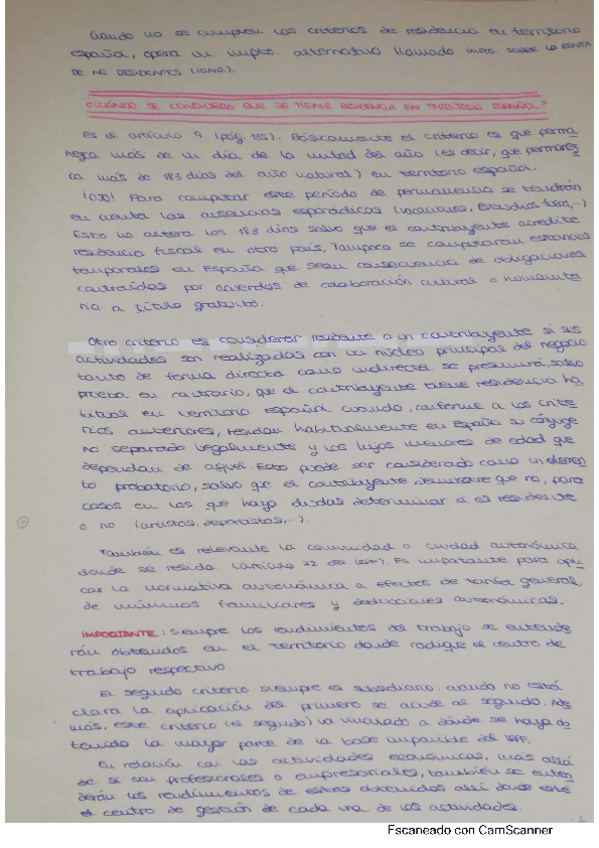 Cuando no se cumplen los criterios de residencia en territorio
español, opera un impto. alternativo llamado IMPTO. SOBRE LA RENTA
DE NO RESIDENTES (IRNR).
¿CUÁNDO SE CONSIDERA QUE SE TIENE RESIDENCIA EN TERRITORIO ESPAÑOL?
Es el artículo 9 (pág. 135). Básicamente el criterio es que perma
nezca más de un día de la mitad del año (es decir, que permanez
ca más de 183 días del año natural) en territorio español.
¡OJO! Para computar este período de permanencia se tendrán
en cuenta las ausencias esporádicas (vacaciones, Estudios fuera,...)
Esto no altera los 183 días salvo que el contribuyente acredite
residencia fiscal en otro país. Tampoco se computarán estancias
temporales en España que sean consecuencia de obligaciones
contraídas por acuerdos de colaboración cultural o humanita
ria a título gratuito.
Otro criterio es considerar residente a un contribuyente si sus
actividades son realizadas con un núcleo principal del negocio
tanto de forma directa como indirecta. Se presumirá, salvo
prueba en contrario, que el contribuyente tiene residencia ha
bitual en territorio español cuando, conforme a los crite
rios anteriores, residan habitualmente en España su cónyuge
no separado legalmente y los hijos menores de edad que
dependan de aquel. Esto puede ser considerado como un elemen
to probatorio, salvo que el contribuyente demuestre que no, para
casos en los que haya dudas determinar si es residente
o no (artistas, deportistas,...).
También es relevante la comunidad o ciudad autonómica
donde se resida (artículo 72 del IRPF). Es importante para apli
car la normativa autonómica a efectos de tarifa general,
de mínimos familiares y deducciones autonómicas.
IMPORTANTE: siempre los rendimientos del trabajo se entende
rán obtenidos en el territorio donde radique el centro de
trabajo respectivo.
El segundo criterio siempre es subsidiario. Cuando no está
clara la aplicación del primero se acude al segundo. Ade
más, este criterio (el segundo) va vinculado a dónde se haya ob
tenido la mayor parte de la base imponible del IRPF.
En relación con las actividades económicas, más allá
de si son profesionales o empresariales, también se enten
derán los rendimientos de estas obtenidos allí donde esté
el centro de gestión de cada una de las actividades.
Escaneado con CamScanner